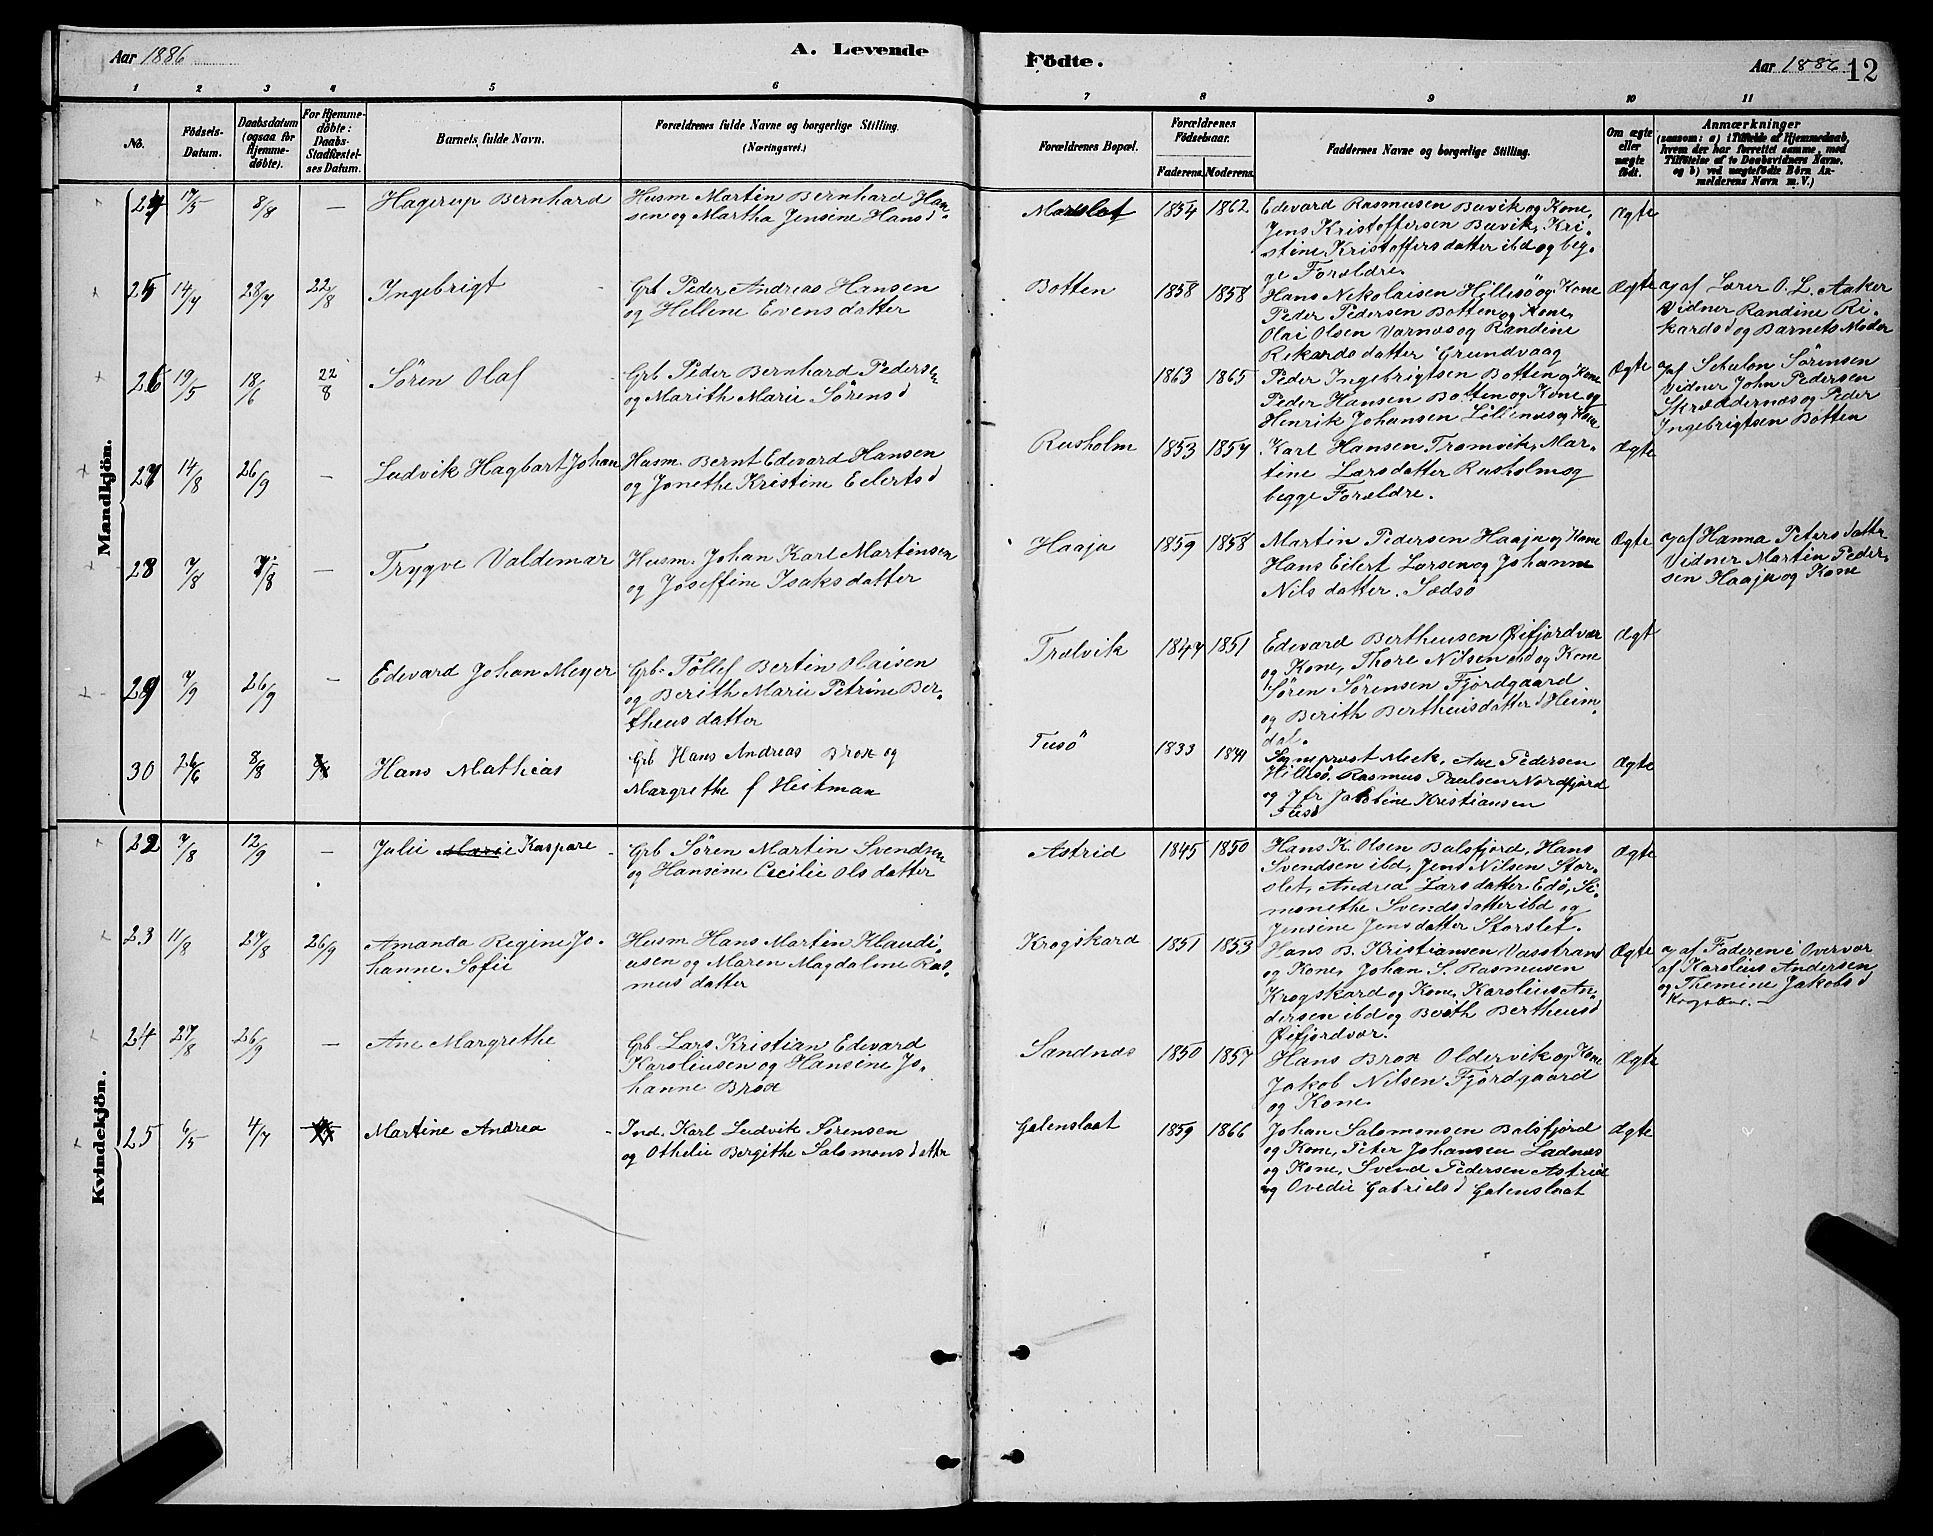 Aar 1886
A. Levende
Födte.
Aar 1886
12
1 2 3 4 5 6 7 8 9 10 11
No.
Födsels-
Datum.
Daabsdatum
(ogsaa for
Hjemme-
döbte).
For Hjemme-
döbte:
Daabs-
Stadfæstel-
ses Datum.
Barnets fulde Navn.
Forældrenes fulde Navne og borgerlige Stilling.
(Næringsvei.)
Forældrenes Bopæl.
Forældrenes
Födselsaar.
Faderens. Moderens.
Faddernes Navne og borgerlige Stilling.
Om ægte
eller
uægte
födt.
Anmærkninger
(saasom: a) i Tilfælde af Hjemmedaab,
hvem der har forrettet samme, med
Tilföielse af to Daabsvidners Navne,
og b) ved uægtefödte Börn An-
melderens Navn m. V.)
Mandkjön.
24 17/5 8/8 — Hagerup Bernhard
Husm Martin Bernhard Han
sen og Martha Jensine Hansd
Marslet 1854 1862
Edevard Rasmusen Buvik og Kone,
Jens Kristoffersen Buvik, Kri-
stine Kristoffersdatter ibd og beg-
ge Forældre.
Ægte
25 14/7 28/7 22/8 Ingebrigt
Grb Peder Andreas Hansen
og Hellene Evensdatter
Botten 1858 1858
Hans Nikolaisen Hillesö og Kone
Peder Pedersen Botten og Kone,
Olai Olsen Varnæs og Randine
Rikardsdatter Grundvaag
Ægte
a) af Lærer O. L. Aaker
Vidner Randine Ri-
kardsd og Barnets Moder
26 19/5 18/6 22/8 Sören Olaf
Grb Peder Bernhard Pedersen
og Marith Marie Sörensd
1863 1865
Peder Ingebrigtsen Botten og Kone
Peder Hansen Botten og Kone og
Henrik Johansen Lillenes og Kone
Ægte
a) af Schelon Sörensen
Vidner John Pedersen
Skræddernæs og Peder
Ingebrigtsen Botten
27 14/8 26/9 — Ludvik Hagbart Johan
Husm. Bernt Edevard Hansen
og Jonethe Kristine Eilertsd
Rusholm 1853 1859
Karl Hansen Tromvik, Mar-
tine Larsdatter Rusholm og
begge Forældre.
Ægte
28 7/8 15/8 — Trygve Valdemar
Husm. Johan Karl Martinsen
og Joseffine Isaksdatter
Haaja 1859 1858
Martin Pedersen Haaja og Kone
Hans Eilert Larsen og Johanne
Nilsdatter. Sædsö
Ægte
a) af Hanna Petersdattr
Vidner Martin Peder-
sen Haaja og Kone
29 7/9 26/9 — Edevard Johan Meyer
Grb. Töllef Bertin Olaisen
og Berith Marie Petrine Ber-
theusdatter
Trælvik 1847 1851
Edevard Bertheusen Öifjordvær
og Kone, Thore Nilsen ibd og Kone
Sören Sörensen Fjordgaard
og Berith Bertheusdatter Heim-
dal.
Ægt
30 26/6 8/8 Hans Mathias
Grb Hans Andreas Brox og
Margrethe f Heitman
Tusö 1833 1844
Sogneprest Meek, Ane Pedersen
Hillesö, Rasmus Paulsen Nordfjord
og Jfr Jakobine Kristiansen
Tusö
Ægte
Kvindekjön.
22 7/8 12/9 — Julie Marie Kaspare
Grb Sören Martin Svendsen
og Hansine Cecilie Olsdatter
Astrid 1845 1850
Hans K. Olsen Balsfjord, Hans
Svendsen ibd, Jens Nilsen Stor-
slet, Andrea Larsdatter Edö, Si-
monethe Svendsdatter ibd og
Jensine Jensdatter Storslet.
Ægte
23 11/8 27/8 26/9 Amanda Regine Jo-
hanne Sofie
Husm Hans Martin Klaudi-
usen og Maren Magdaline Ras-
musdatter
Krogskard 1851 1853
Hans B. Kristiansen Vasstrand
og Kone, Johan S. Rasmusen
Krogskard og Kone, Karolius An-
dersen ibd og Berith Bertheusd
Öifjordvær.
Ægte
a) af Faderen i Overvær
af Karolius Andersen
og Themine Jakobsd
Krogskar. —
24 27/8 26/9 — Ane Margrethe
Grb Lars Kristian Edevard
Karoliusen og Hansine Jo-
hanne Brox
Sandnæs 1850 1857
Hans Brox Oldervik og Kone
Jakob Nilsen Fjordgaard
og Kone.
Ægte
25 6/5 4/7 Martine Andrea
Ind. Karl Ludvik Sörensen
og Othelie Bergithe Salomonsdattr
Galenslaat 1859 1866
Johan Salomonsen Balsfjord
og Kone, Peter Johansen Ladnæs
og Kone, Svend Pedersen Astrid
og Ovedie Gabrielsd Galenslaat
Ægte